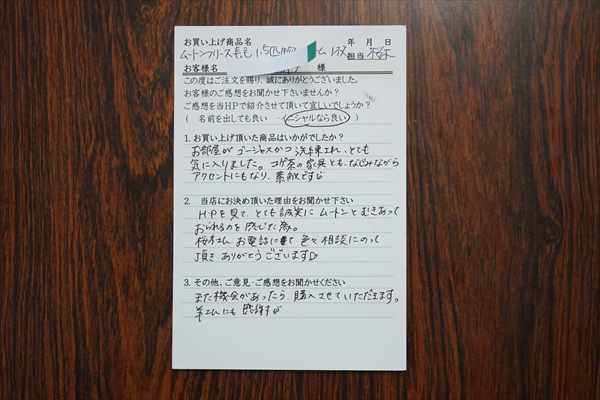 お買い上げ商品名 年 月 日
ムートンフリース 1.5匹 担当
お客様名 様
この度はご注文を賜り、誠にありがとうございました。
お客様のご感想をお聞かせ下さいませんか?
ご感想を当HPで紹介させて頂いて宜しいでしょうか?
( 名前を出しても良い イニシャルなら良い )
1. お買い上げ頂いた商品はいかがでしたか?
お部屋がゴージャスかつ洗練され、とても
気に入りました。コゲ茶の家具とも、なじみながら
アクセントにもなり、素敵です
2. 当店にお決め頂いた理由をお聞かせ下さい
HPを見て、とても誠実にムートンとむきあって
おられるのを感じた為。
桜木さん お電話にて 色々相談にのって
頂き ありがとうございます
3. その他、ご意見・ご感想をお聞かせください
また機会があったら、購入させていただきます。
にも 感謝です